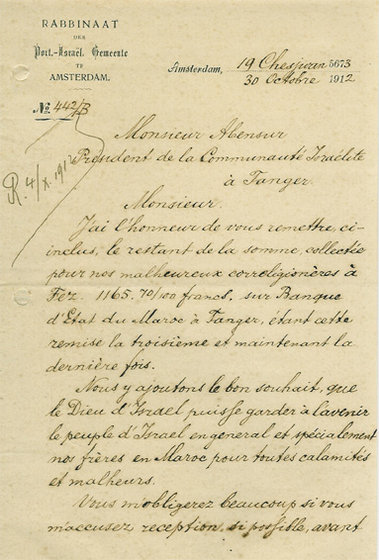 RABBINAAT
DER
Port.-Israël. Gemeente
TE
AMSTERDAM.
Amsterdam, 19 Chesvan 5673
30 Octobre 1912
No. 442/B
R. 4/X. 1912
Monsieur Abensur
Président de la Communauté Israélite
à Tanger.
Monsieur.
J'ai l'honneur de vous remettre, ci-
inclus, le restant de la somme, collectée
pour nos malheureux correligionères à
Fez. 1165.70/100 francs. sur Banque
d'Etat du Maroc à Tanger, étant cette
remise la troisième et maintenant la
dernière fois.
Nous y ajoutons le bon souhait, que
le Dieu d'Israel puisse garder à l'avenir
le peuple d'Israel en general et spécialement
nos frères en Maroc pour toutes calamités
et malheurs.
Vous m'obligerez beaucoup si vous
m'accusez reception, si possible, avant